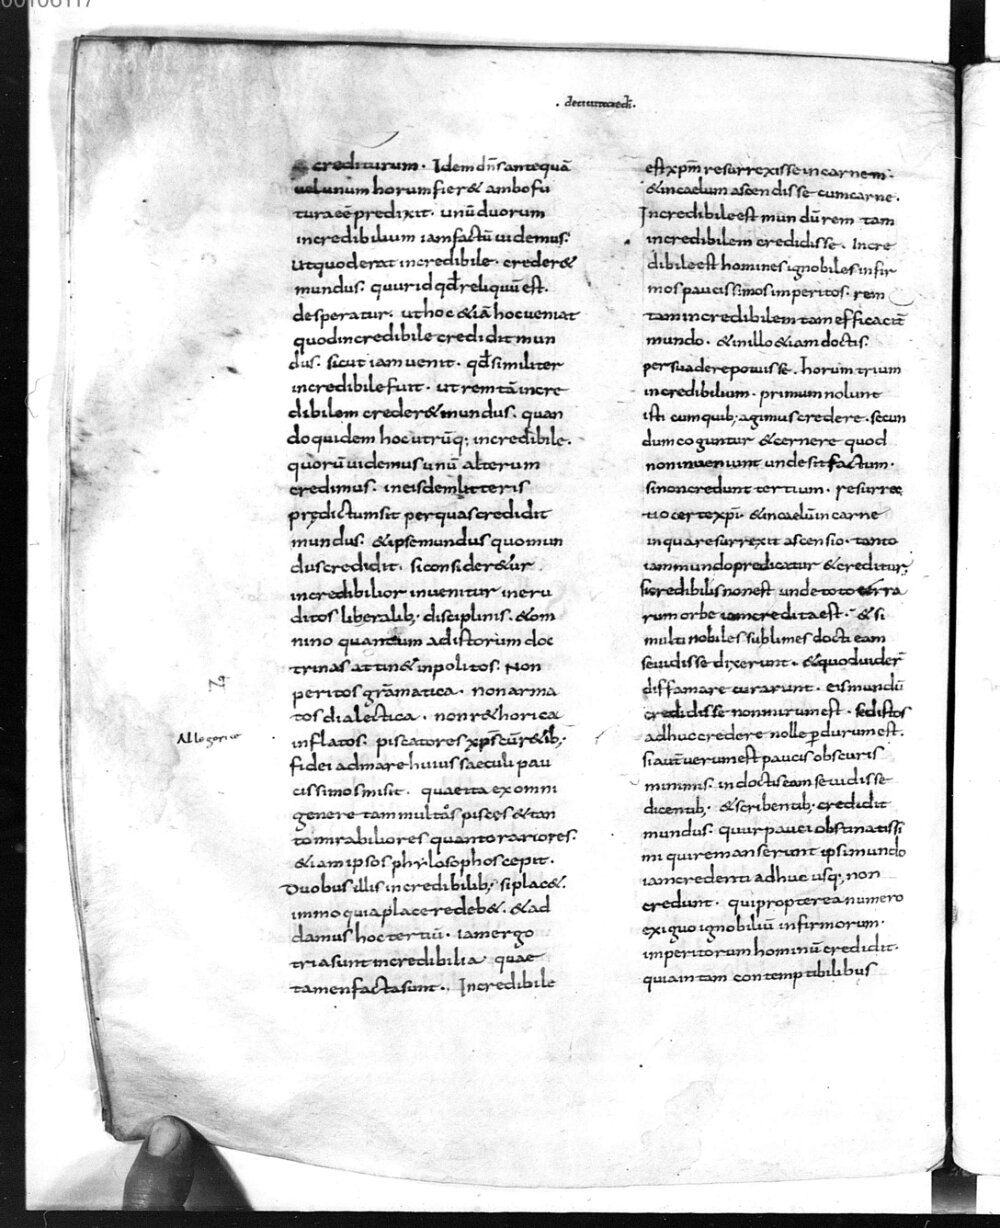 00106117
. deciuitatedī.
crediturum. Idem dn̄s antequā
uel unum horum fier& ambo fu
tura eē predixit. unū duorum
incredibilium iam factū uidemus.
Ut quod erat incredibile. creder&
mundus. quur id qd̄ reliquū est.
desperatur. ut hoc &iā hoc ueniat
quod incredibile credidit mun
dus. sicut iam uenit. qd̄ similiter
incredibile fuit. ut rem tā incre
dibilem creder& mundus. quan
do quidem hoc utrūq; incredibile.
quorū uidemus unū alterum
credimus. in eisdem litteris
prędictum sit per quas credidit
mundus. & ipse mundus quo mun
dus credidit. si consider&ur.
incredibilior inuenitur ineru
ditos liberalib; disciplinis. & om
nino quantum ad istorum doc
trinas attin& inpolitos. Non
peritos grāmatica. non arma
tos dialectica. non r&horica
Allegorice
inflatos. piscatores xp̄s cū r&ib;
fidei ad mare huius saeculi pau
cissimos misit. quae ita ex omni
genere tam multos pisces & tan
to mirabiliores quanto rariores.
&iam ipsos phylosophos cepit.
Duobus illis incredibilib; si plac&.
immo quia placere deb&. & ad
damus hoc tertiū. iam ergo
tria sunt incredibilia quae
tamen facta sunt. Incredibile
est xp̄m resurrexisse in carnem.
& in caelum ascendisse cum carne.
Incredibile est mundū rem tam
incredibilem credidisse. Incre
dibile est homines ignobiles infir
mos paucissimos imperitos. rem
tam incredibilem tam efficacit̄
mundo. & in illo &iam doctis.
persuadere potuisse. horum trium
incredibilium. primum nolunt
isti cum quib; agimus credere. secun
dum coguntur & cernere quod
non inueniunt unde sit factum.
si non credunt tertium. resurrec
tio certe xp̄i. & in caelū in carne
in qua resurrexit ascensio. tanto
iam mundo predicatur & creditur,
si credibilis non est unde toto terra
rum orbe iam credita est. & si
multi nobiles sublimes docti eam
se uidisse dixerunt. & quod uider̄
diffamare curarunt. eis mundū
credidisse non mirum est. sed istos
adhuc credere nolle p̱durum est.
si aut̄ uerum est paucis obscuris
minimis. indoctis eam se uidisse
dicentib; & scribentib; credidit
mundus. quur pauci obstinatissi
mi qui remanserunt ipsi mundo
iam credenti adhuc usq; non
credunt. qui propterea numero
exiguo ignobiliū infirmorum.
imperitorum hominū credidit.
quia in tam contemptibilibus